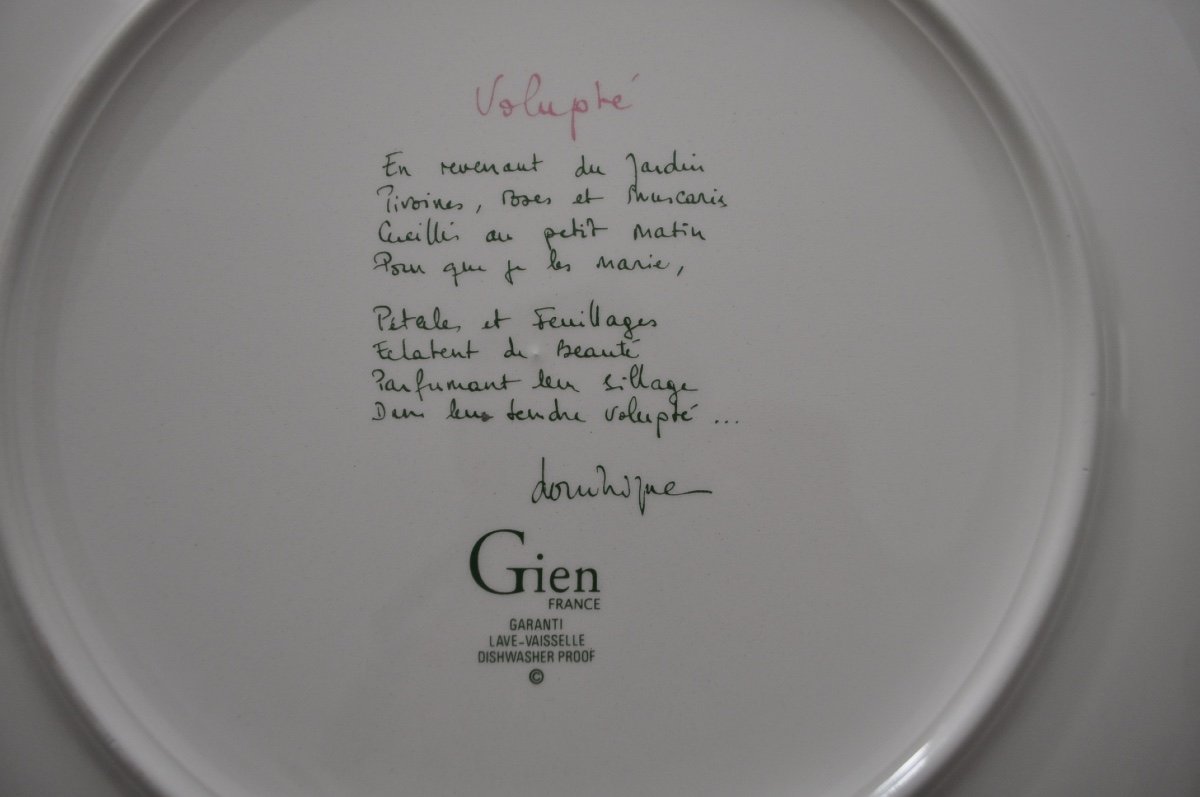 Volupté
En revenant du Jardin
Pivoines, Roses et Muscaris
Cueillis au petit Matin
Pour que je les marie,
Pétales et Feuillages
Eclatent de Beauté
Parfumant leur sillage
Dans leur tendre volupté ...
dominique
Gien
FRANCE
GARANTI
LAVE-VAISSELLE
DISHWASHER PROOF
©